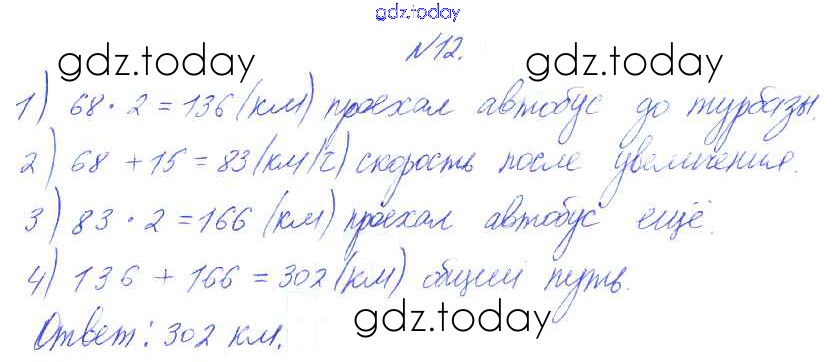 gdz.today
№12.
gdz.today gdz.today
1) 68 · 2 = 136 (км) проехал автобус до турбазы.
2) 68 + 15 = 83 (км/ч) скорость после увеличения.
3) 83 · 2 = 166 (км) проехал автобус ещё.
4) 136 + 166 = 302 (км) общий путь.
Ответ: 302 км.
gdz.today